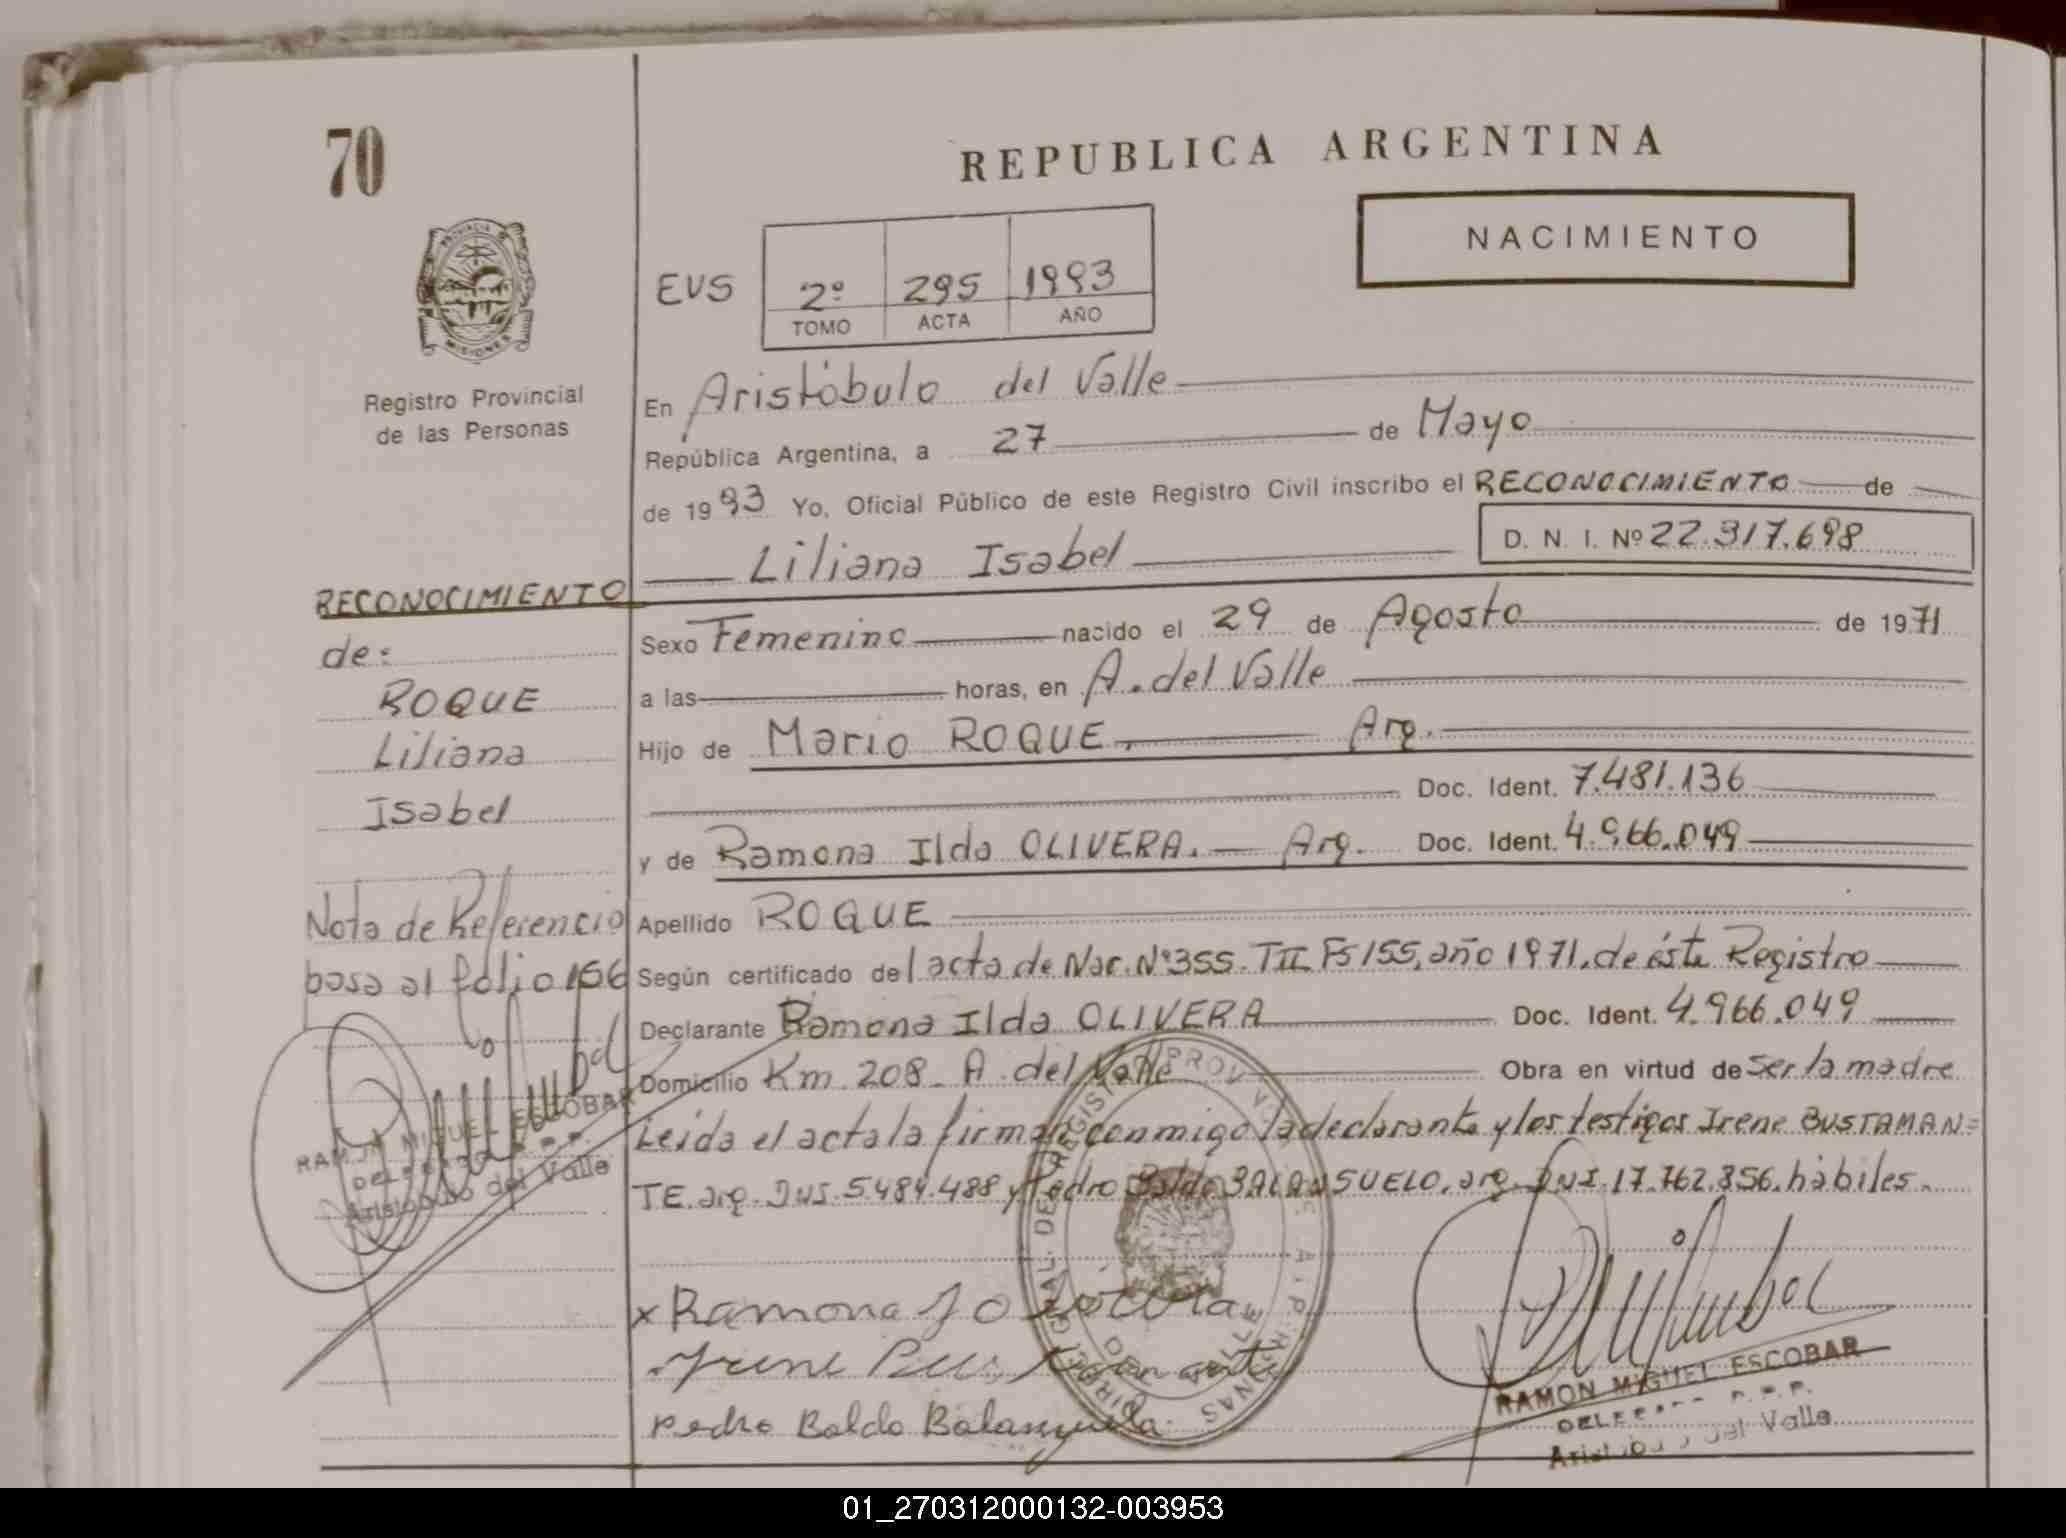 70
REPUBLICA ARGENTINA
NACIMIENTO
PROVINCIA D
MISIONES
Registro Provincial
de las Personas
EVS 2º 295 1993
TOMO ACTA AÑO
En Aristóbulo del Valle
República Argentina, a 27 de Mayo
de 1993 Yo, Oficial Público de este Registro Civil inscribo el RECONOCIMIENTO de
Liliana Isabel D. N. I. Nº 22.317.698
RECONOCIMIENTO
de:
ROQUE
Liliana
Isabel
Nota de Referencia
basa al folio 156
RAMON MIGUEL ESCOBAR
Aristobulo del Valle
Sexo Femenino nacido el 29 de Agosto de 1971
a las horas, en A. del Valle
Hijo de Mario ROQUE. Arg.
Doc. Ident. 7.481.136
y de Ramona Ilda OLIVERA. Arg. Doc. Ident. 4.966.049
Apellido ROQUE
Según certificado del acta de Nac. Nº 355. TII Fs 155, año 1971, de éste Registro
Declarante Ramona Ilda OLIVERA Doc. Ident. 4.966.049
Domicilio Km 208. A. del Valle Obra en virtud de Ser la madre
Leida el acta la firman conmigo la declarante y los testigos Irene BUSTAMAN=
TE. arg. DNI. 5.484.488 y Pedro Baldo BALANSUELO, arg. DNI. 17.762.856. hábiles.
x Ramona
Irene
Pedro Baldo
RAMON MIGUEL ESCOBAR
Aristobulo del Valle
01_270312000132-003953